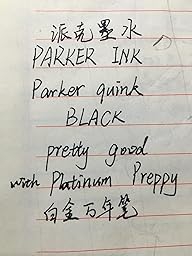 派克墨水
PARKER INK
Parker quink
BLACK
pretty good
with Platinum Preppy
白金万年笔